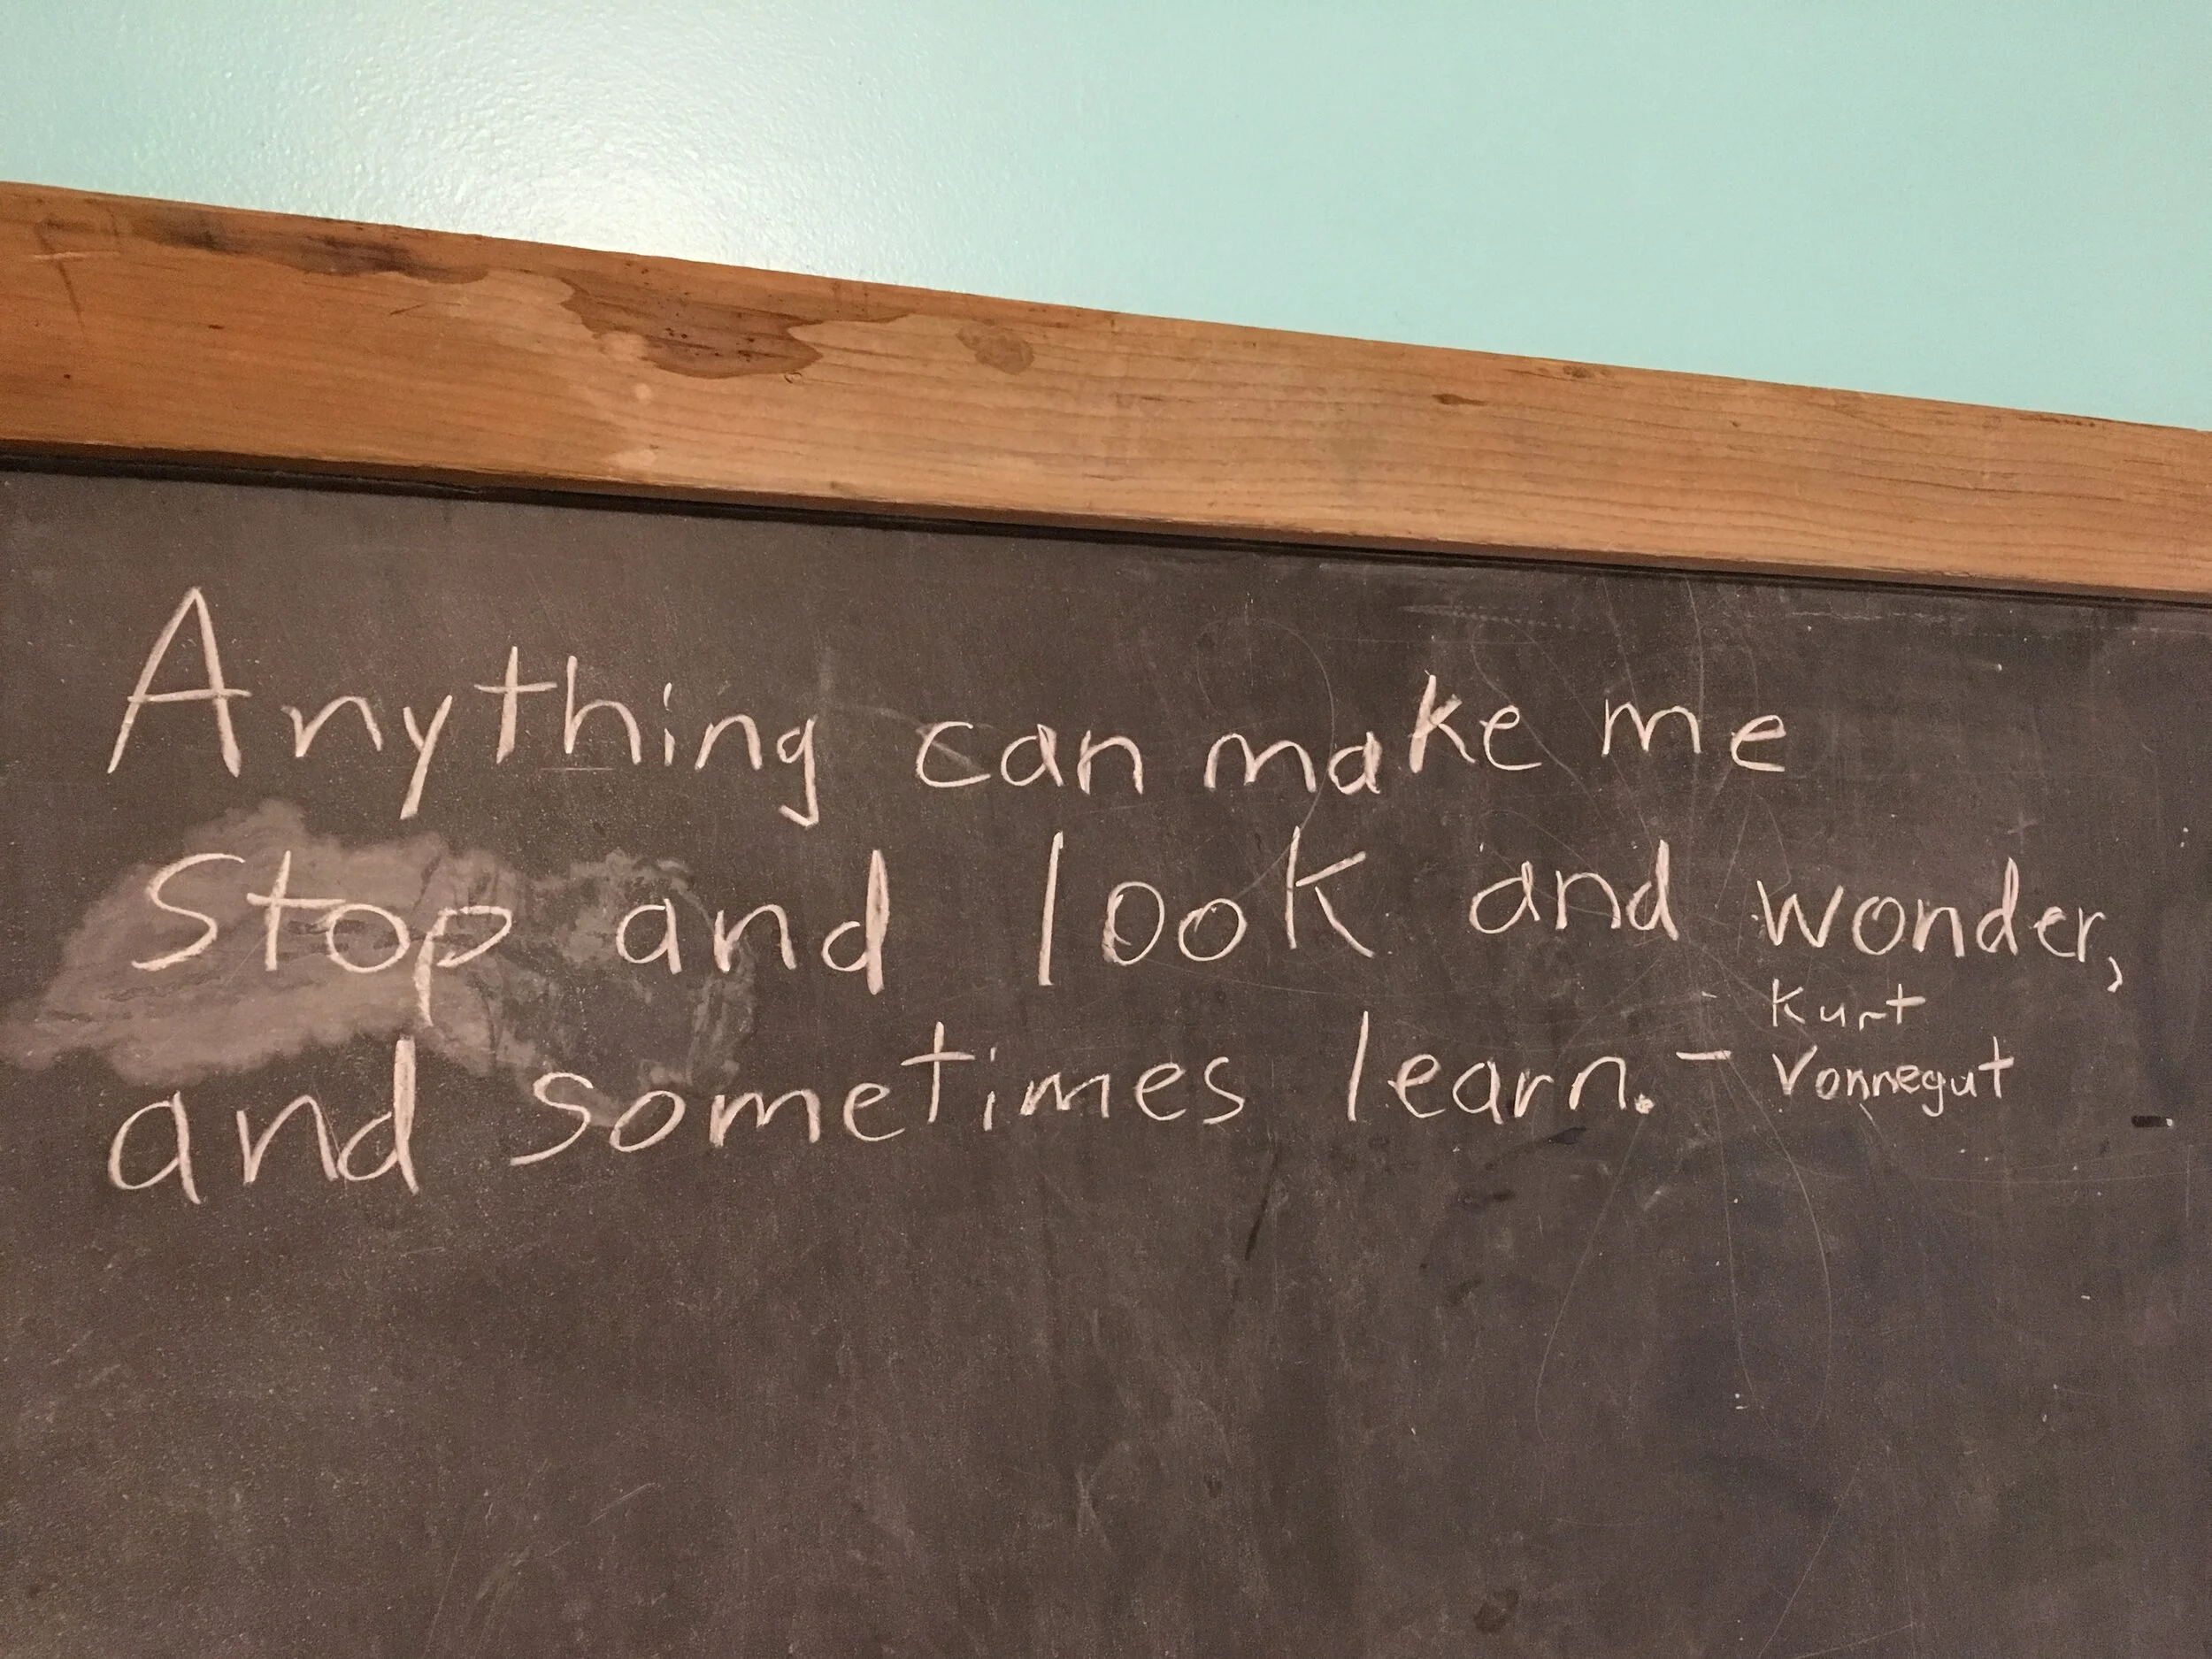 Anything can make me
stop and look and wonder,
and sometimes learn. - Kurt
Vonnegut